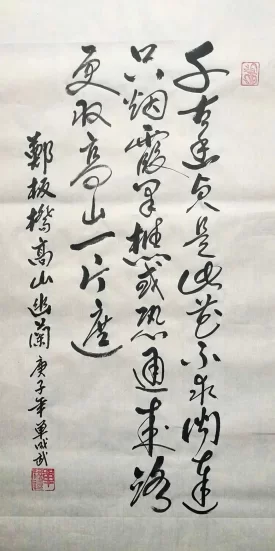 千古幽貞是此花不求聞達
只烟霞采樵或恐通來路
更取高山一片遮
鄭板橋高山幽蘭 庚子年